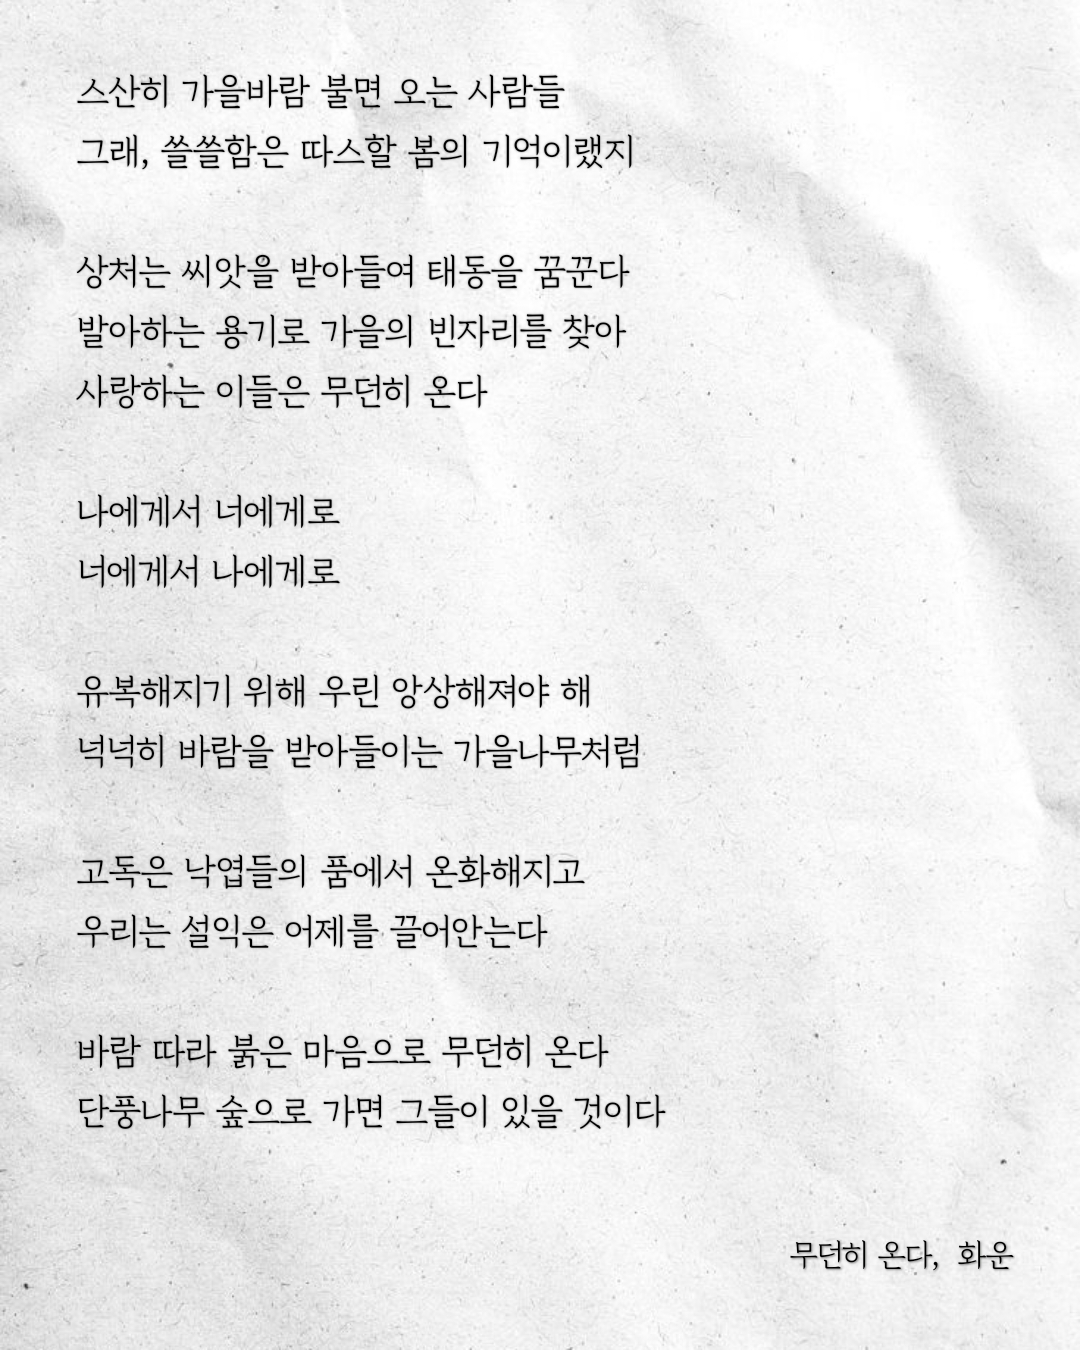 스산히 가을바람 불면 오는 사람들
그래, 쓸쓸함은 따스할 봄의 기억이랬지
상처는 씨앗을 받아들여 태동을 꿈꾼다
발아하는 용기로 가을의 빈자리를 찾아
사랑하는 이들은 무던히 온다
나에게서 너에게로
너에게서 나에게로
유복해지기 위해 우린 앙상해져야 해
넉넉히 바람을 받아들이는 가을나무처럼
고독은 낙엽들의 품에서 온화해지고
우리는 설익은 어제를 끌어안는다
바람 따라 붉은 마음으로 무던히 온다
단풍나무 숲으로 가면 그들이 있을 것이다
무던히 온다, 화운